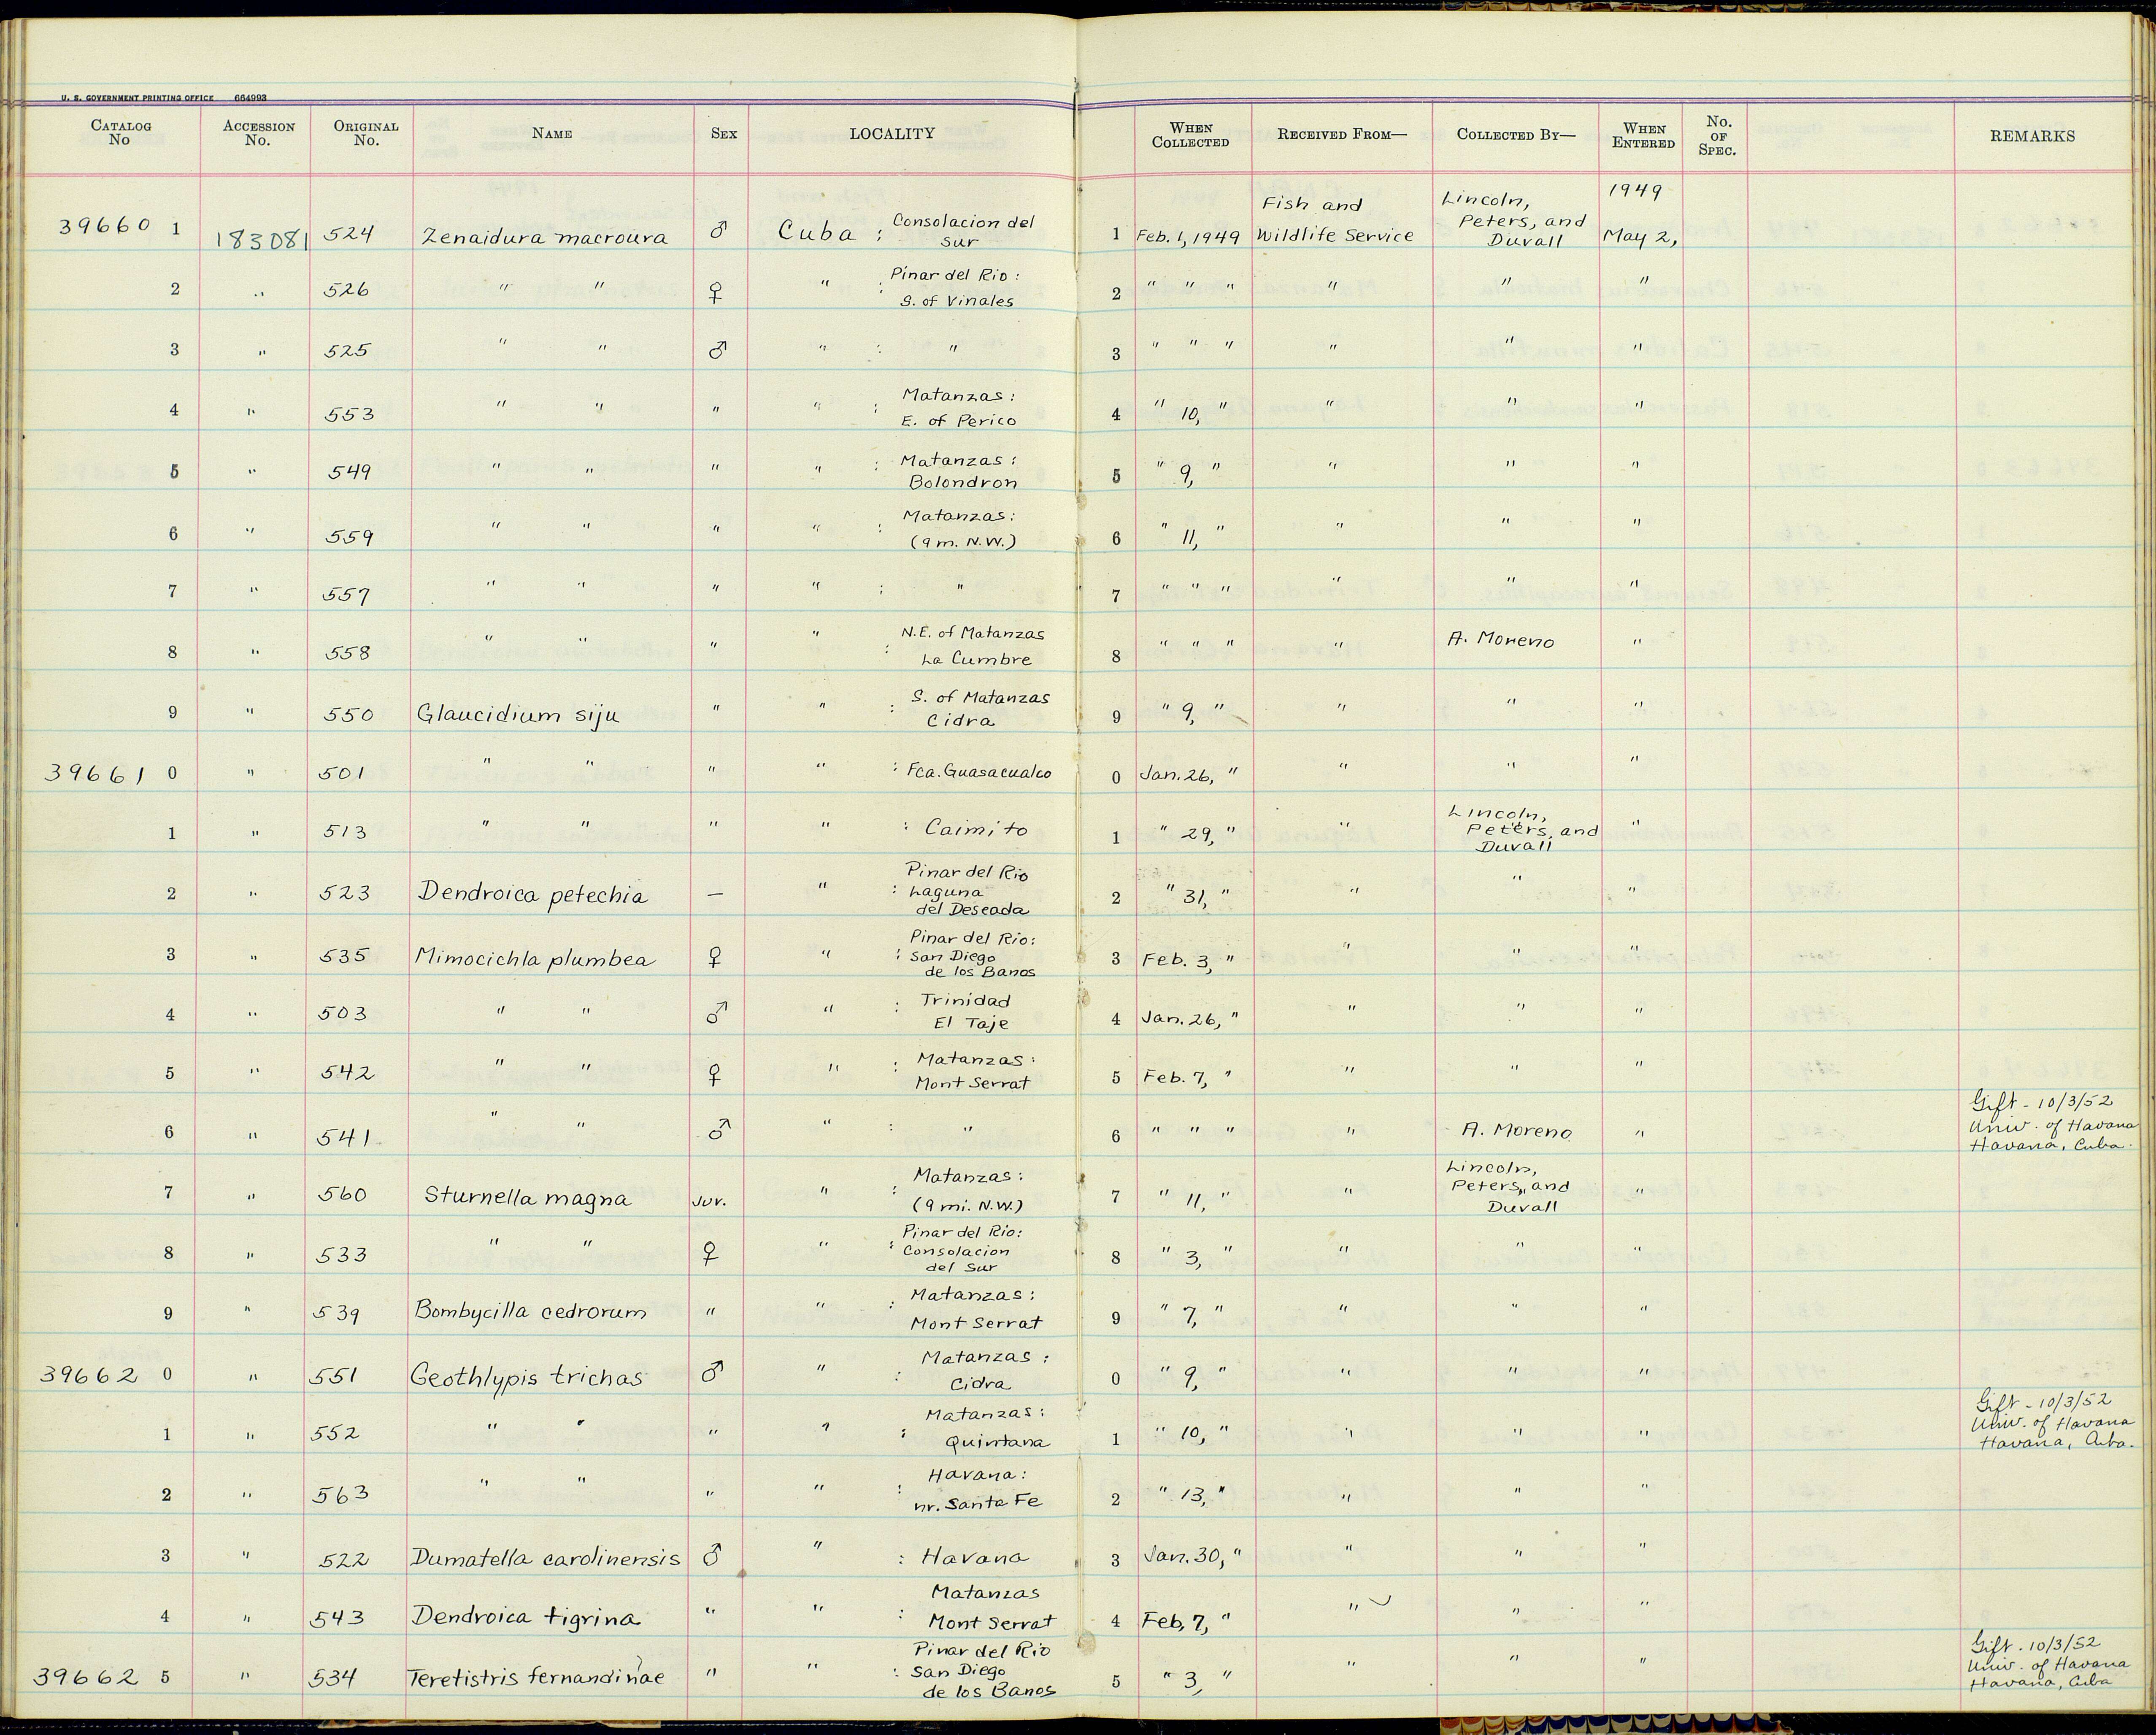 U. S. GOVERNMENT PRINTING OFFICE 664993
CATALOG No ACCESSION No. ORIGINAL No. NAME SEX LOCALITY WHEN COLLECTED RECEIVED FROM— COLLECTED BY— WHEN ENTERED No. OF SPEC. REMARKS
39660 1 183081 524 Zenaidura macroura ♂ Cuba : Consolacion del Sur 1 Feb. 1, 1949 Fish and Wildlife Service Lincoln, Peters, and Duvall 1949 May 2,
2 " 526 " " ♀ " : Pinar del Rio: S. of Vinales 2 " " " " " "
3 " 525 " " ♂ " : " 3 " " " " " "
4 " 553 " " " " : Matanzas: E. of Perico 4 " 10, " " " "
5 " 549 " " " " : Matanzas: Bolondron 5 " 9, " " " "
6 " 559 " " " " : Matanzas: (9 m. N.W.) 6 " 11, " " " "
7 " 557 " " " " : " 7 " " " " " "
8 " 558 " " " " : N.E. of Matanzas La Cumbre 8 " " " " A. Moreno "
9 " 550 Glaucidium siju " " : S. of Matanzas Cidra 9 " 9, " " " "
39661 0 " 501 " " " " : Fca. Guasacualco 0 Jan. 26, " " " "
1 " 513 " " " " : Caimito 1 " 29, " " Lincoln, Peters, and Duvall "
2 " 523 Dendroica petechia — " : Pinar del Rio Laguna del Deseada 2 " 31, " " " "
3 " 535 Mimocichla plumbea ♀ " : Pinar del Rio: San Diego de los Banos 3 Feb. 3, " " " "
4 " 503 " " ♂ " : Trinidad El Taje 4 Jan. 26, " " " "
5 " 542 " " ♀ " : Matanzas: Mont Serrat 5 Feb. 7, " " " "
6 " 541 " " ♂ " : " 6 " " " " A. Moreno " Gift - 10/3/52 Univ. of Havana Havana, Cuba.
7 " 560 Sturnella magna Juv. " : Matanzas: (9 mi. N.W.) 7 " 11, " " Lincoln, Peters, and Duvall "
8 " 533 " " ♀ " : Pinar del Rio: Consolacion del Sur 8 " 3, " " " "
9 " 539 Bombycilla cedrorum " " : Matanzas: Mont Serrat 9 " 7, " " " "
39662 0 " 551 Geothlypis trichas ♂ " : Matanzas: Cidra 0 " 9, " " " "
1 " 552 " " " " : Matanzas: Quintana 1 " 10, " " " " Gift - 10/3/52 Univ. of Havana Havana, Cuba.
2 " 563 " " " " : Havana: nr. Santa Fe 2 " 13, " " " "
3 " 522 Dumatella carolinensis ♂ " : Havana 3 Jan. 30, " " " "
4 " 543 Dendroica tigrina " " : Matanzas Mont Serrat 4 Feb, 7, " " " "
39662 5 " 534 Teretistris fernandinae " " : Pinar del Rio San Diego de los Banos 5 " 3, " " " " Gift - 10/3/52 Univ. of Havana Havana, Cuba